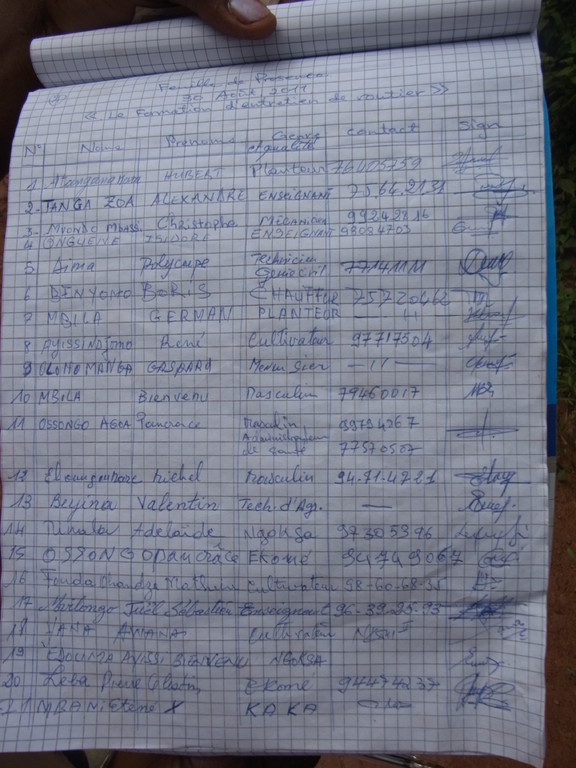 Feuille de Présence
30 Août 2011
<< La Formation d'entretien de routier >>
N° Noms Prénoms contact Sign
1 HUBERT Planteur 76105759
2- TANGA ZOA ALEXANDRE ENSEIGNANT 75.64.21.31
3- MVONDO Christophe Mécanicien 99242816
4 ONGUENE ISIDORE ENSEIGNANT 98094703
5 Bima Polycarpe Technicien Genie civil 77141111
6 BINYONO BORIS CHAUFFEUR 75720462
7 MBILA GERMAN PLANTEUR — 11
8 Ayissi Ndjomo René Cultivateur 97717504
9 OLOMO MANGA GASPARD Menuisier — 11 —
10 MBILA Bienvenu Masculin 79460017
11 OSSONGO AGOA Pancrace Masculin 99794267
Administrateur
de santé 77570507
12 Michel Masculin 94.71.4721
13 Beyina Valentin Tech. d'Ag. —
14 Adelaïde Ngoksa 97305396
15 OSSONGO pancrace EKOMÉ 94749067
16 Fouda Cultivateur 98-60-68-35
17 Joël Sébastien Enseignant 96-39-25-93
18 NANA AMANA Cultivateur
19 EDOUMA AYISSI BIENVENU NGOKSA
20 Zeba Pierre Célestin Ekomé 94474237
21 MBANI Etienne X KAKA